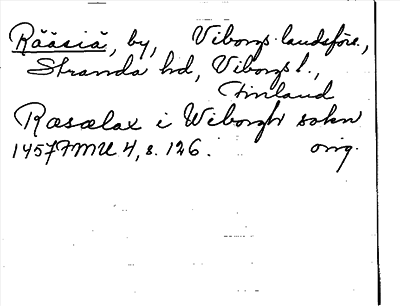 Rääsiä, by, Viborgs landsförs.,
Stranda hd, Viborgs l.,
Finland
Ræsælax i Wiborgh sokn
1457 FMU 4, s. 126. orig.